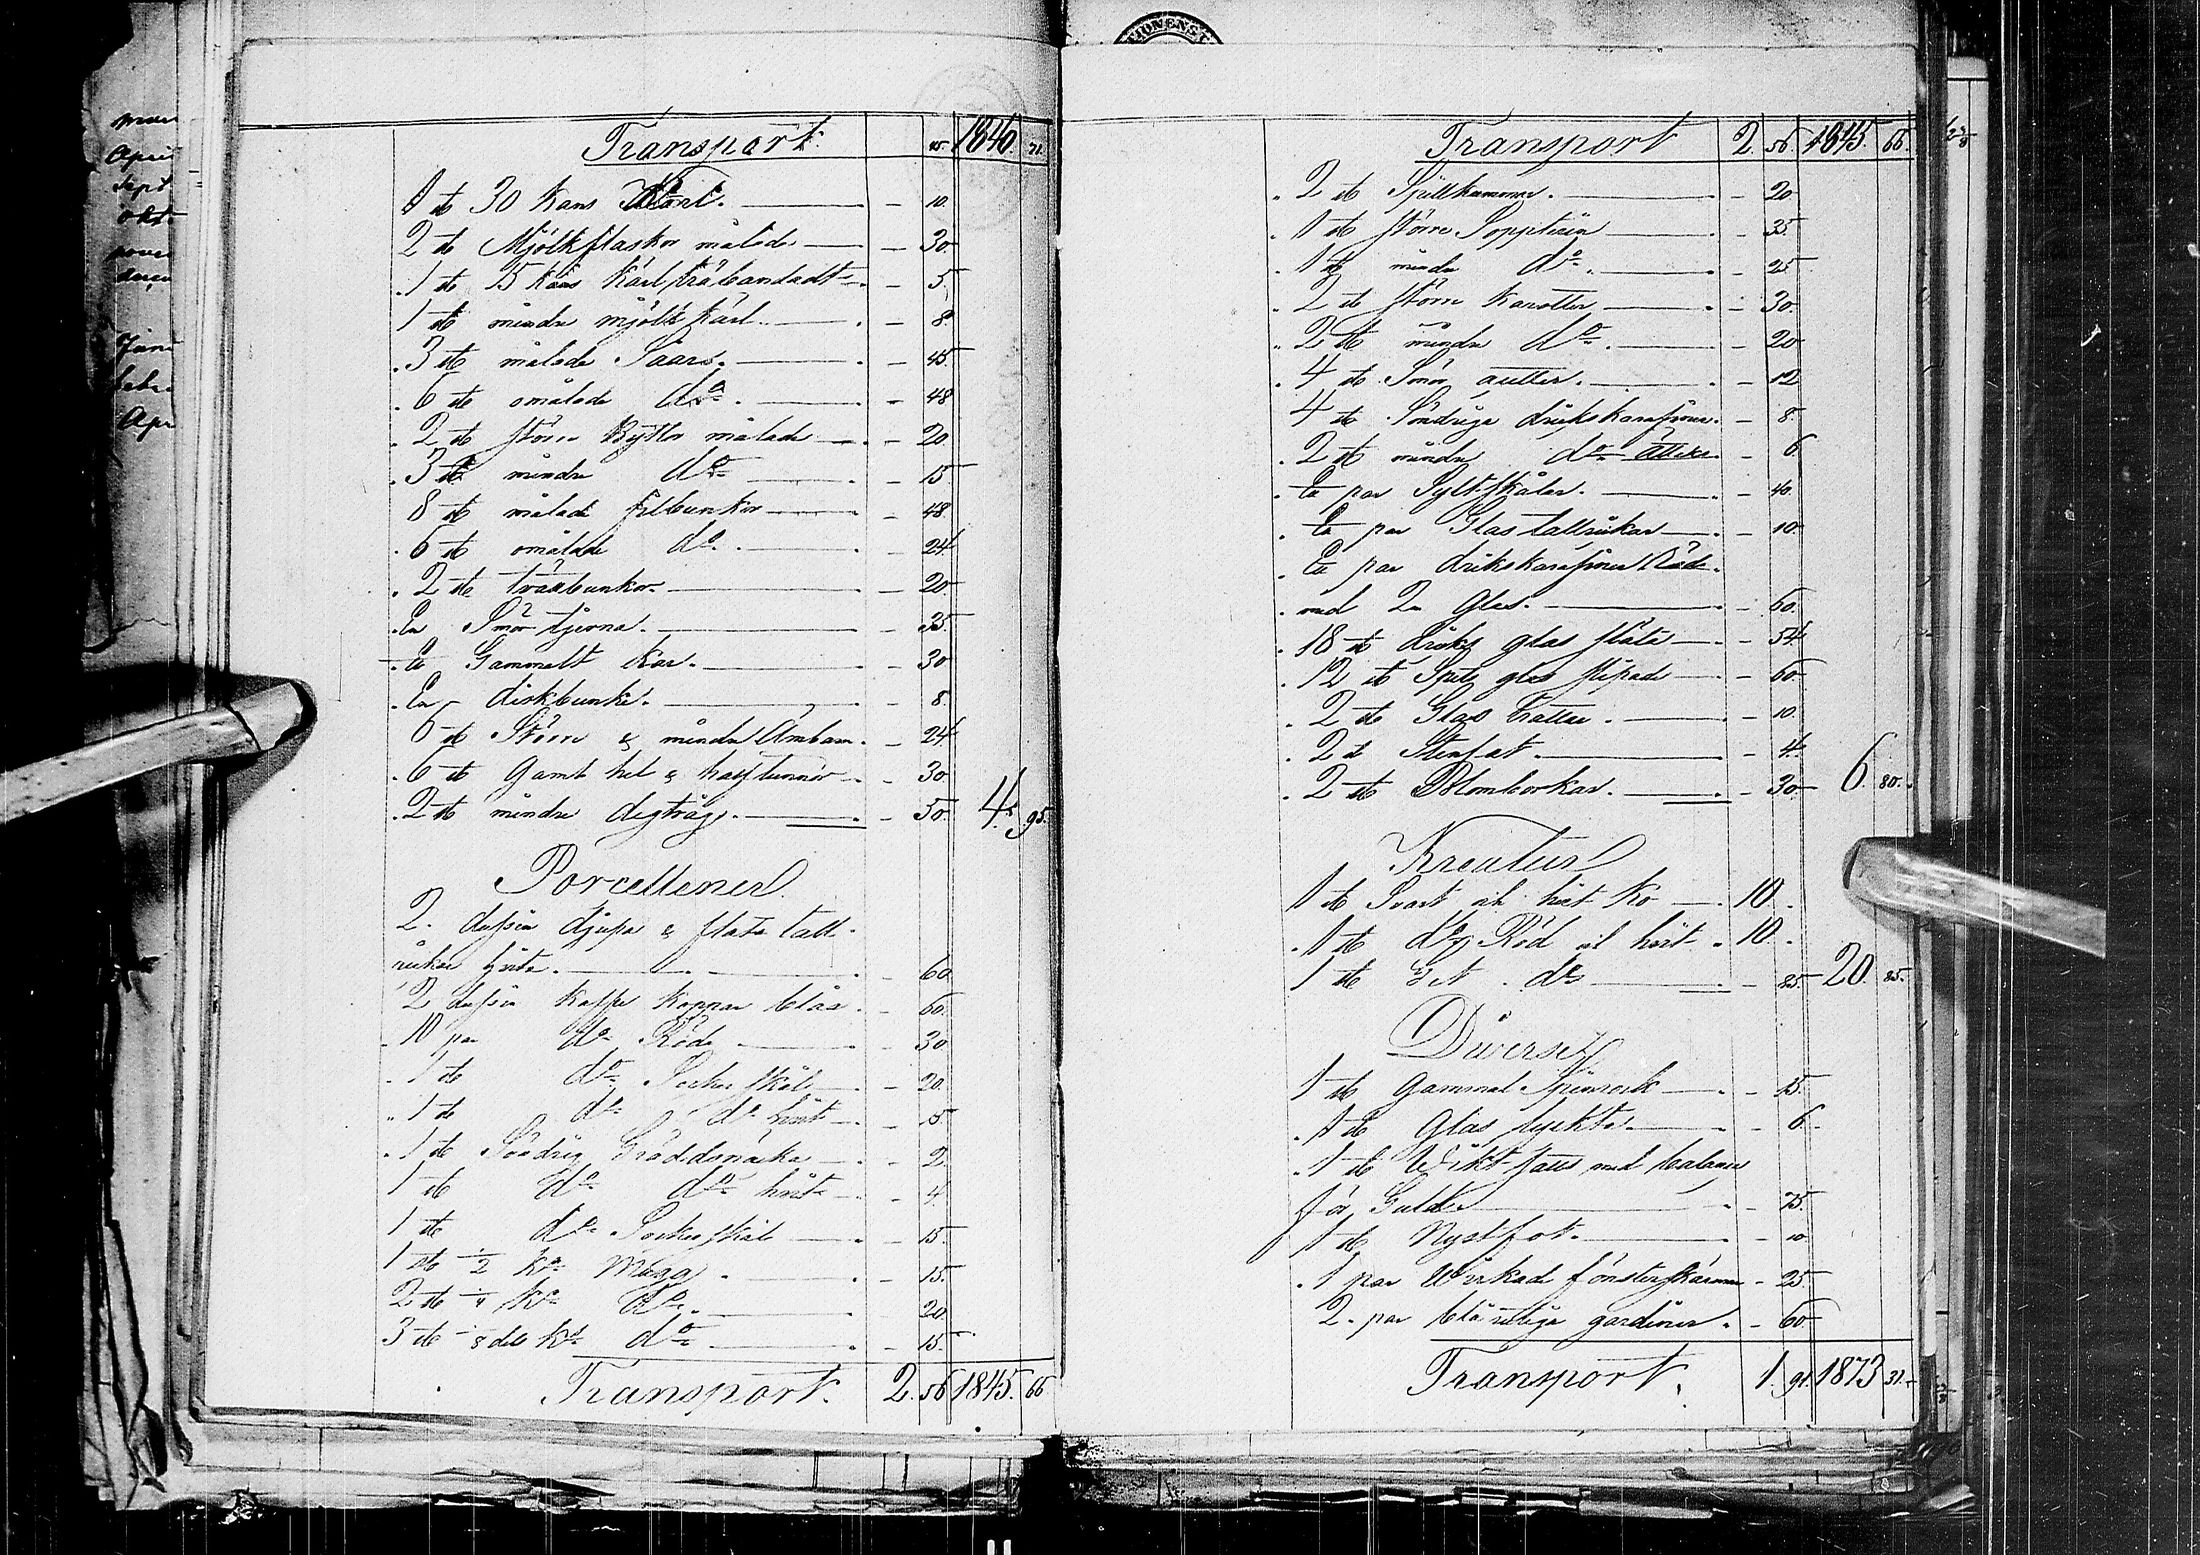 Transport 45. 1840. 71.
1 st 30 Kans Kärl. — 10.
2 st Mjölkflaskor målade — 30.
1 st 15 Kans Kärl träbandadt — 5.
1 st mindre mjölk kärl. — 8.
3 st målade Såar. — 45.
6 st omålade do — 48.
2 st större Byttor målade — 20.
3 st mindre do — 15
8 st målade filbunkar — 48.
6 st omålade do — 24
2 st träbunkar — 20
En Smör tjerna. — 35.
Et Gammalt Kar. — 30
En diskbunke. — 8.
6 st Större & mindre Ämbar. — 24
6 st Gaml hel & halftunnor — 30
2 st mindre degtråg. — 50. 4. 95.
Porcellener
2 dussin djupa & flata tall-
rickar hvita. — 60
2 dussin kaffe koppar blåa. — 60.
10 par do Röda — 30
1 st do Sockerskål — 20.
1 st do do hvit — 15.
1 st Söndrig Gräddsnäcka — 2
1 st do do hvit — 4
1 st do Sockerskål — 15
1 st ½ ka Mugg. — 15.
2 st ¼ ka do. — 20.
3 st ⅛ dels ka do — 15.
Transport. 2. 56 1845. 66
mars
April
Sept
okt
nove
Juni
febr.
Apr
Transport 2. 56. 1845. 66.
2 st Spillkummar. — 20
1 st större Soppterin — 35.
1 st mindre do. — 25
2 st större Karotter — 30.
2 st mindre do. — 20
4 st Smör — 12
4 st Söndriga drickskaraffiner. — 8.
2 st mindre do ättika — 6
Et par Syltskålar. — 40.
Et par Glastallrickar — 10.
Et par drickskaraffiner Röda
med 2 Glas. — 60.
18 st dricks glas släta — 54.
12 st Spets glas slipade — 60.
2 st Glas trattar. — 10.
2 st Stenfat. — 4.
2 st Blomborkar. — 30. 6. 80.
Kreatur
1 st Svart och hvit Ko — 10.
1 st do Röd och hvit. 10.
1 st do — 85. 20. 85.
Diverse
1 st Gammal Spinrock — 15.
1 st Glas lyckta. — 6
1 st Wiktskåls med balans
för Guld. — 75.
1 st Nystfot. — 10
1 par Wirkade fönsterskärmar — 25.
2 par blårutiga gardiner. — 60.
Transport. 1. 91. 1873 31.